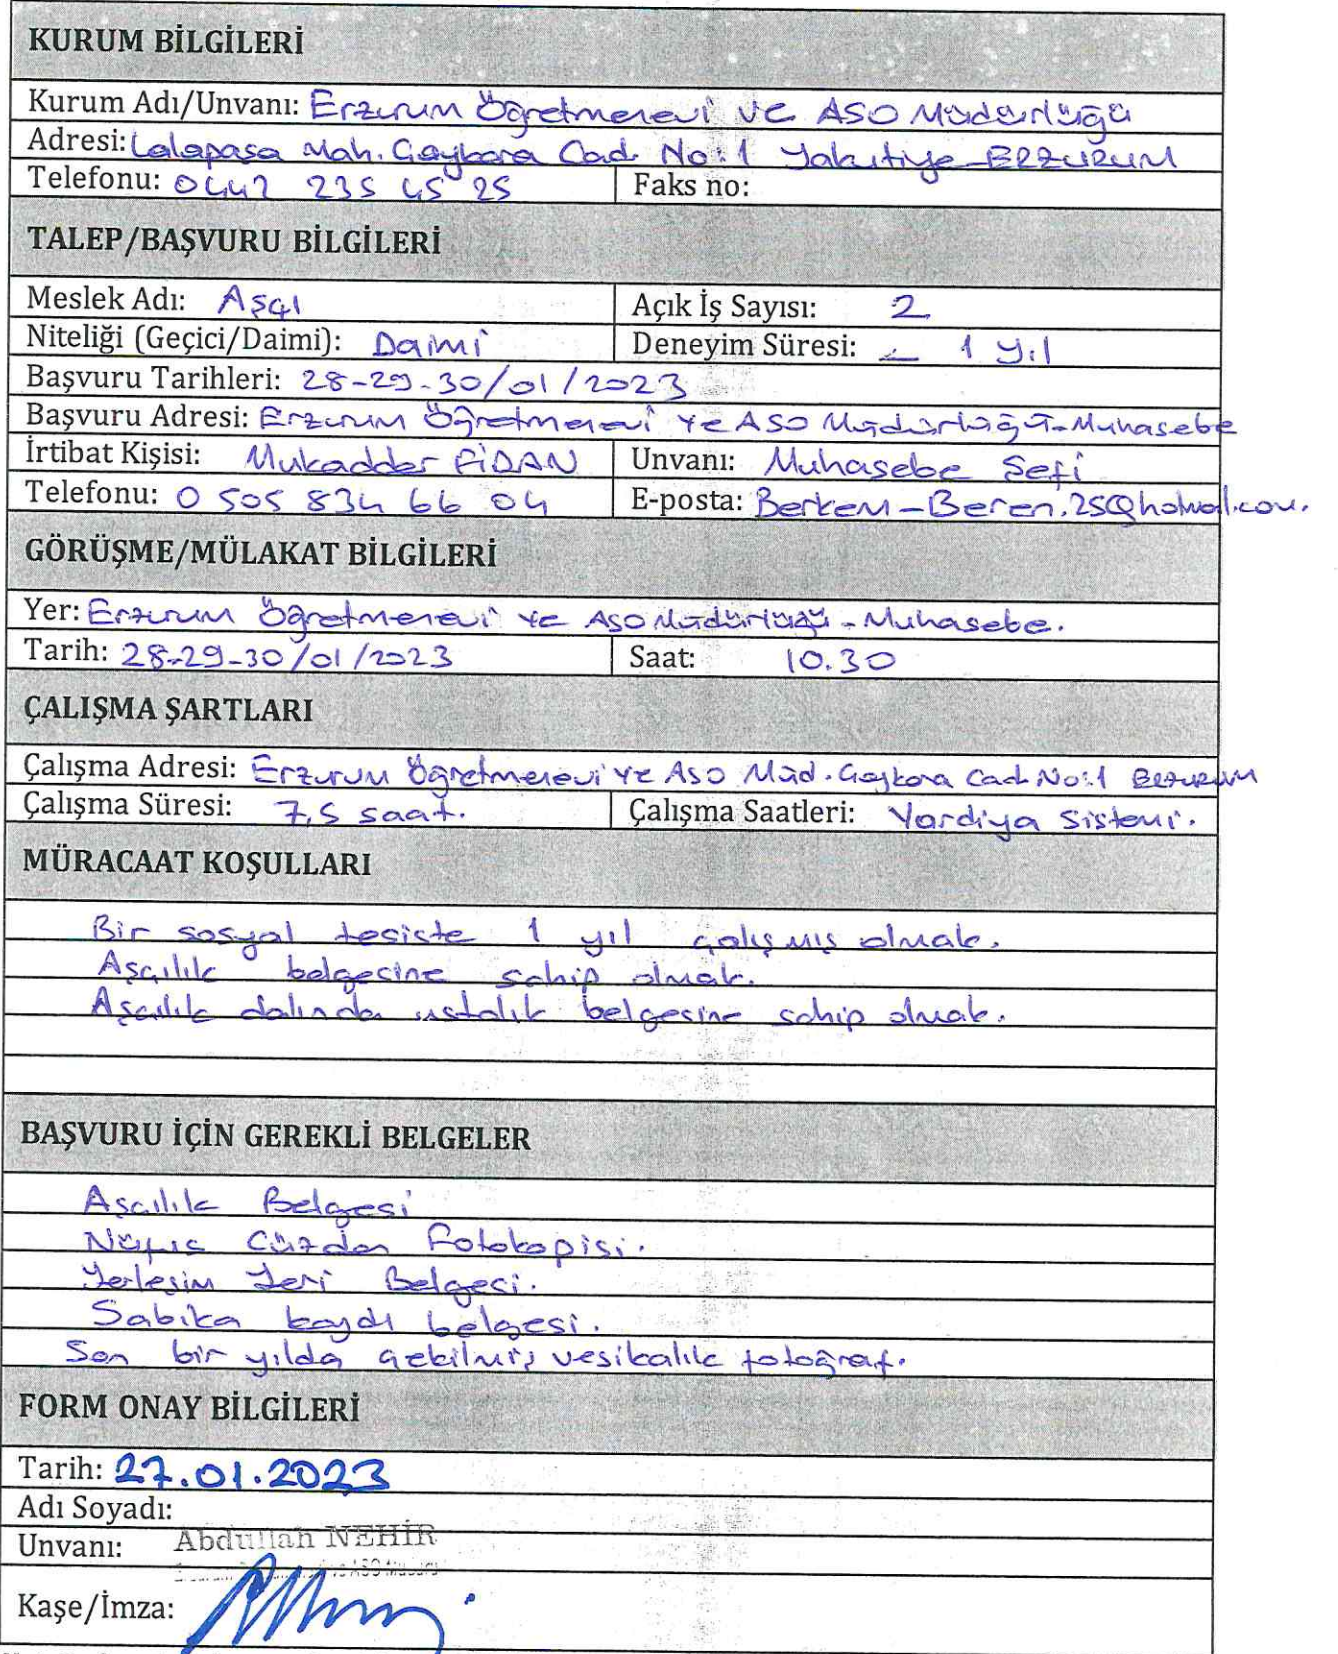 KURUM BİLGİLERİ
Kurum Adı/Unvanı: Erzurum Öğretmenevi ve ASO Müdürlüğü
Adresi: Lalapaşa Mah. Çaykara Cad. No:1 Yakutiye-ERZURUM
Telefonu: 0442 235 45 25 Faks no:
TALEP/BAŞVURU BİLGİLERİ
Meslek Adı: Aşçı Açık İş Sayısı: 2
Niteliği (Geçici/Daimi): Daimi Deneyim Süresi: 1 yıl
Başvuru Tarihleri: 28-29-30/01/2023
Başvuru Adresi: Erzurum Öğretmenevi ve ASO Müdürlüğü-Muhasebe
İrtibat Kişisi: Mukadder FİDAN Unvanı: Muhasebe Şefi
Telefonu: 0 505 834 66 04 E-posta: Berkem-Beren.25@hotmail.com.
GÖRÜŞME/MÜLAKAT BİLGİLERİ
Yer: Erzurum Öğretmenevi ve ASO Müdürlüğü - Muhasebe.
Tarih: 28-29-30/01/2023 Saat: 10.30
ÇALIŞMA ŞARTLARI
Çalışma Adresi: Erzurum Öğretmenevi ve ASO Müd. Çaykara Cad. No:1 ERZURUM
Çalışma Süresi: 7,5 saat. Çalışma Saatleri: Vardiya Sistemi.
MÜRACAAT KOŞULLARI
Bir sosyal tesiste 1 yıl çalışmış olmak.
Aşçılık belgesine sahip olmak.
Aşçılık dalında ustalık belgesine sahip olmak.
BAŞVURU İÇİN GEREKLİ BELGELER
Aşçılık Belgesi
Nüfus Cüzdan Fotokopisi.
Yerleşim Yeri Belgesi.
Sabika kaydı belgesi.
Son bir yılda çekilmiş vesikalık fotoğraf.
FORM ONAY BİLGİLERİ
Tarih: 27.01.2023
Adı Soyadı:
Abdullah NEHİR
Unvanı:
Kaşe/İmza: